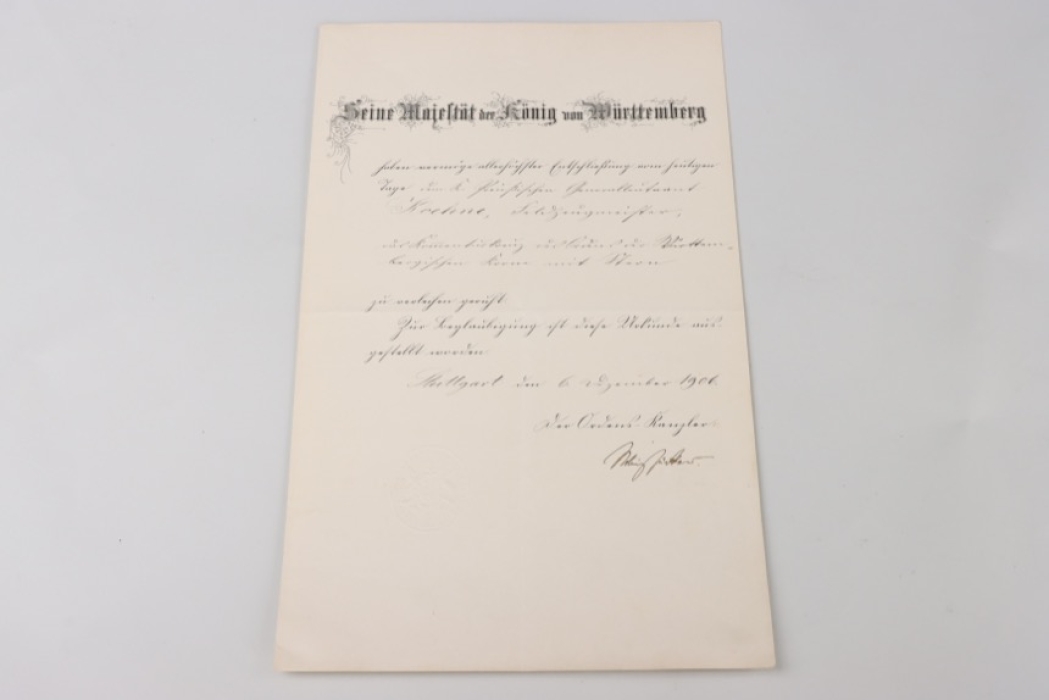 Seine Majestät der König von Württemberg
haben vermöge allerhöchster Entschließung vom heutigen
Tage dem K. Preußischen Generalleutnant
Feldzeugmeister,
das Komenturkreuz des Ordens der Württem-
bergischen Krone mit Stern
zu verleihen geruht.
Zur Beglaubigung ist diese Urkunde aus-
gestellt worden.
Stuttgart den 6. Dezember 1906.
Der Ordens-Kanzler: